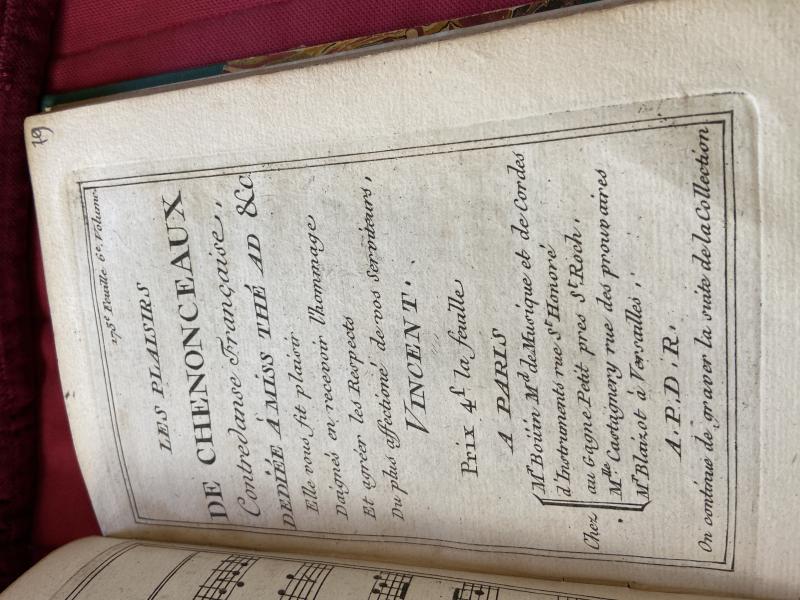 79
173e Feuille 6e Volume
LES PLAISIRS
DE CHENONCEAUX
Contredanse Française,
DEDIÉE A MISS THÉ AD &c
Elle vous fit plaisir
Daignés en recevoir l'hommage
Et agréer les Respects
Du plus affectioné de vos Serviteurs,
VINCENT.
Prix 4s la feuille
A PARIS
Chez
Mr Boüin Md de Musique et de Cordes
d'Instruments rue St Honoré
au Gagne Petit pres St Roch.
Mlle Castagnery rue des prouvaires
Mr Blaizot à Versailles.
A. P. D. R.
On continüe de graver la suite de la Collection